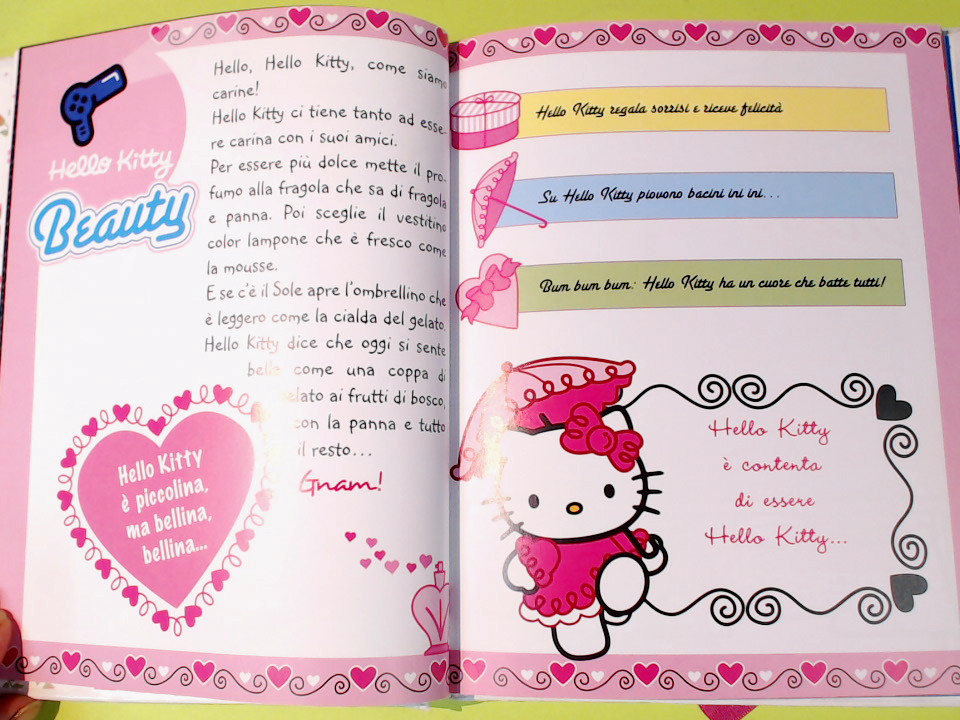 Hello Kitty
Beauty
Hello, Hello Kitty, come siamo
carine!
Hello Kitty ci tiene tanto ad esse-
re carina con i suoi amici.
Per essere più dolce mette il pro-
fumo alla fragola che sa di fragola
e panna. Poi sceglie il vestitino
color lampone che è fresco come
la mousse.
E se c'è il Sole apre l'ombrellino che
è leggero come la cialda del gelato.
Hello Kitty dice che oggi si sente
bella come una coppa di
gelato ai frutti di bosco,
con la panna e tutto
il resto...
Gnam!
Hello Kitty
è piccolina,
ma bellina,
bellina...
Hello Kitty regala sorrisi e riceve felicità
Su Hello Kitty piovono bacini ini ini...
Bum bum bum: Hello Kitty ha un cuore che batte tutti!
Hello Kitty
è contenta
di essere
Hello Kitty...